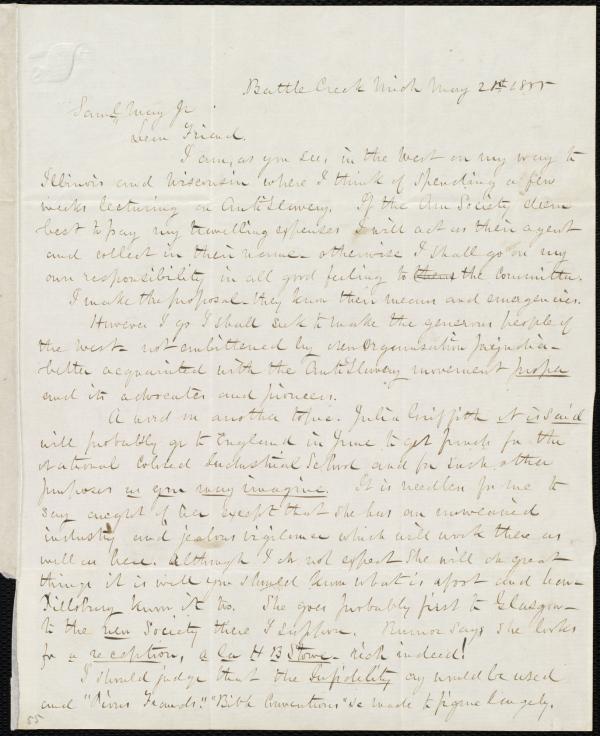 Battle Creek Mich May 21st 1855
Saml. May Jr
Dear Friend.
I am, as you see, in the West on my way to
Illinois and Wisconsin where I think of spending a few
weeks lecturing on AntiSlavery. If the Am Society deem
best to pay my travelling expenses I will act as their agent
and collect in their name - otherwise I shall go on my
own responsibility in all good feeling to them the Committee.
I make the proposal - they know their means and emergencies.
However I go I shall seek to make the generous people of
the West - not embittered by New Organization prejudice -
better acquainted with the AntiSlavery movement proper
and its advocates and pioneers.
A word on another topic. Julia Griffith it is said
will probably go to England in June to get funds for the
National Colored Industrial School and for such other
purposes as you may imagine. It is needless for me to
say aught of her except that she has an unwearied
industry and jealous vigilance which will work there as
well as here. Although I do not expect she will do great
things it is well you should know what is afoot and have
Pillsbury know it too. She goes probably first to Glasgow -
to the new Society there I suppose. Rumor says she looks
for a reception, a la H B Stowe - rich indeed!
I should judge that the Infidelity cry would be used
and "Pious Frauds." "Bible Conventions" be made to figure largely.
55